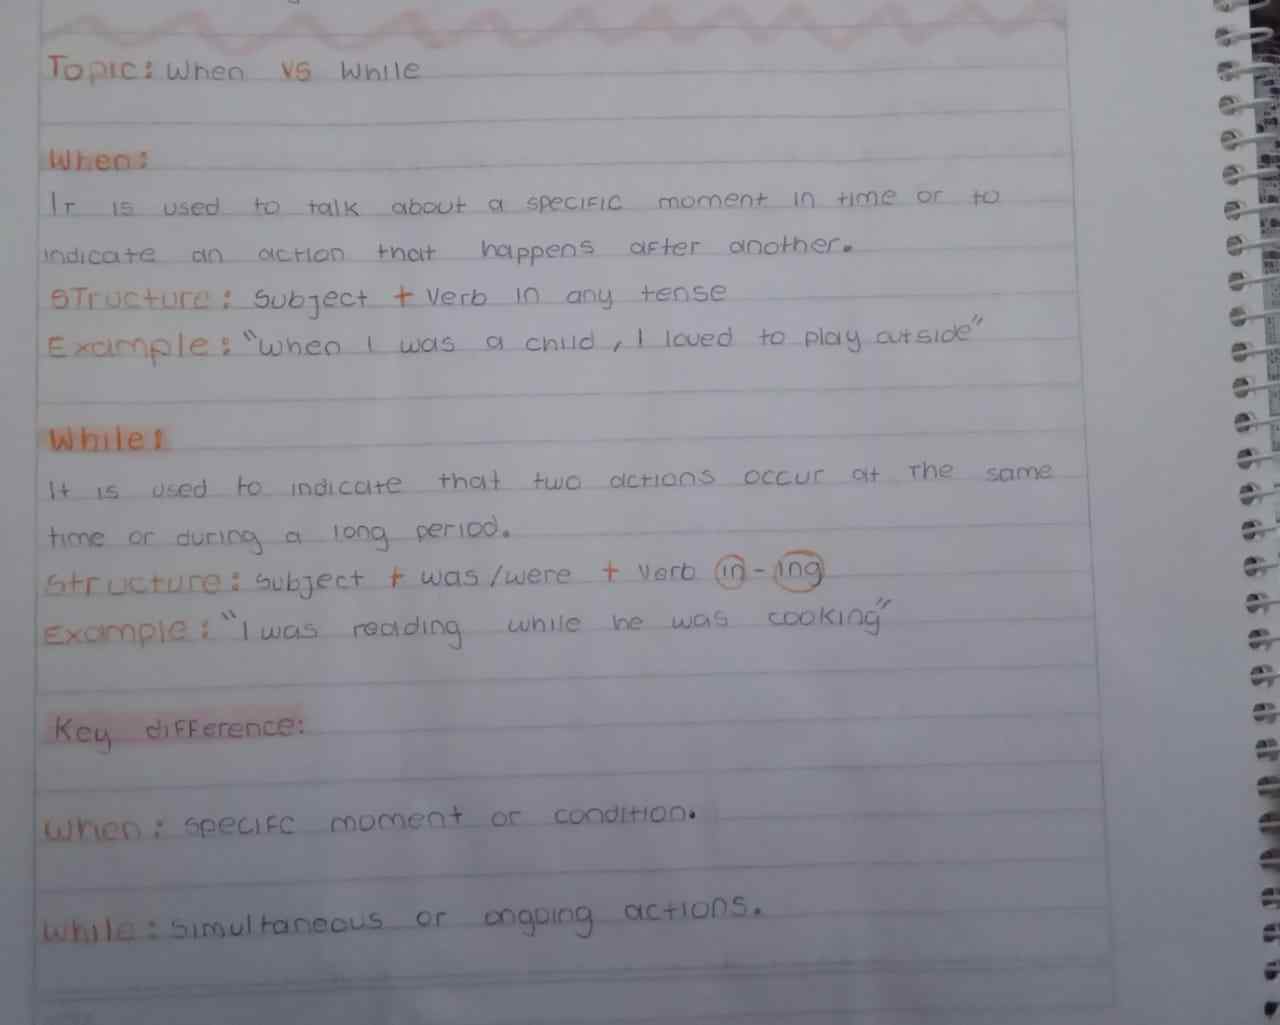 Topic: When vs While
When:
It is used to talk about a specific moment in time or to
indicate an action that happens after another.
Structure: Subject + Verb in any tense
Example: "when I was a child, I loved to play outside"
While:
It is used to indicate that two actions occur at the same
time or during a long period.
Structure: Subject + was/were + verb in-ing
Example: "I was reading while he was cooking"
Key difference:
When: specifc moment or condition.
While: simultaneous or ongoing actions.